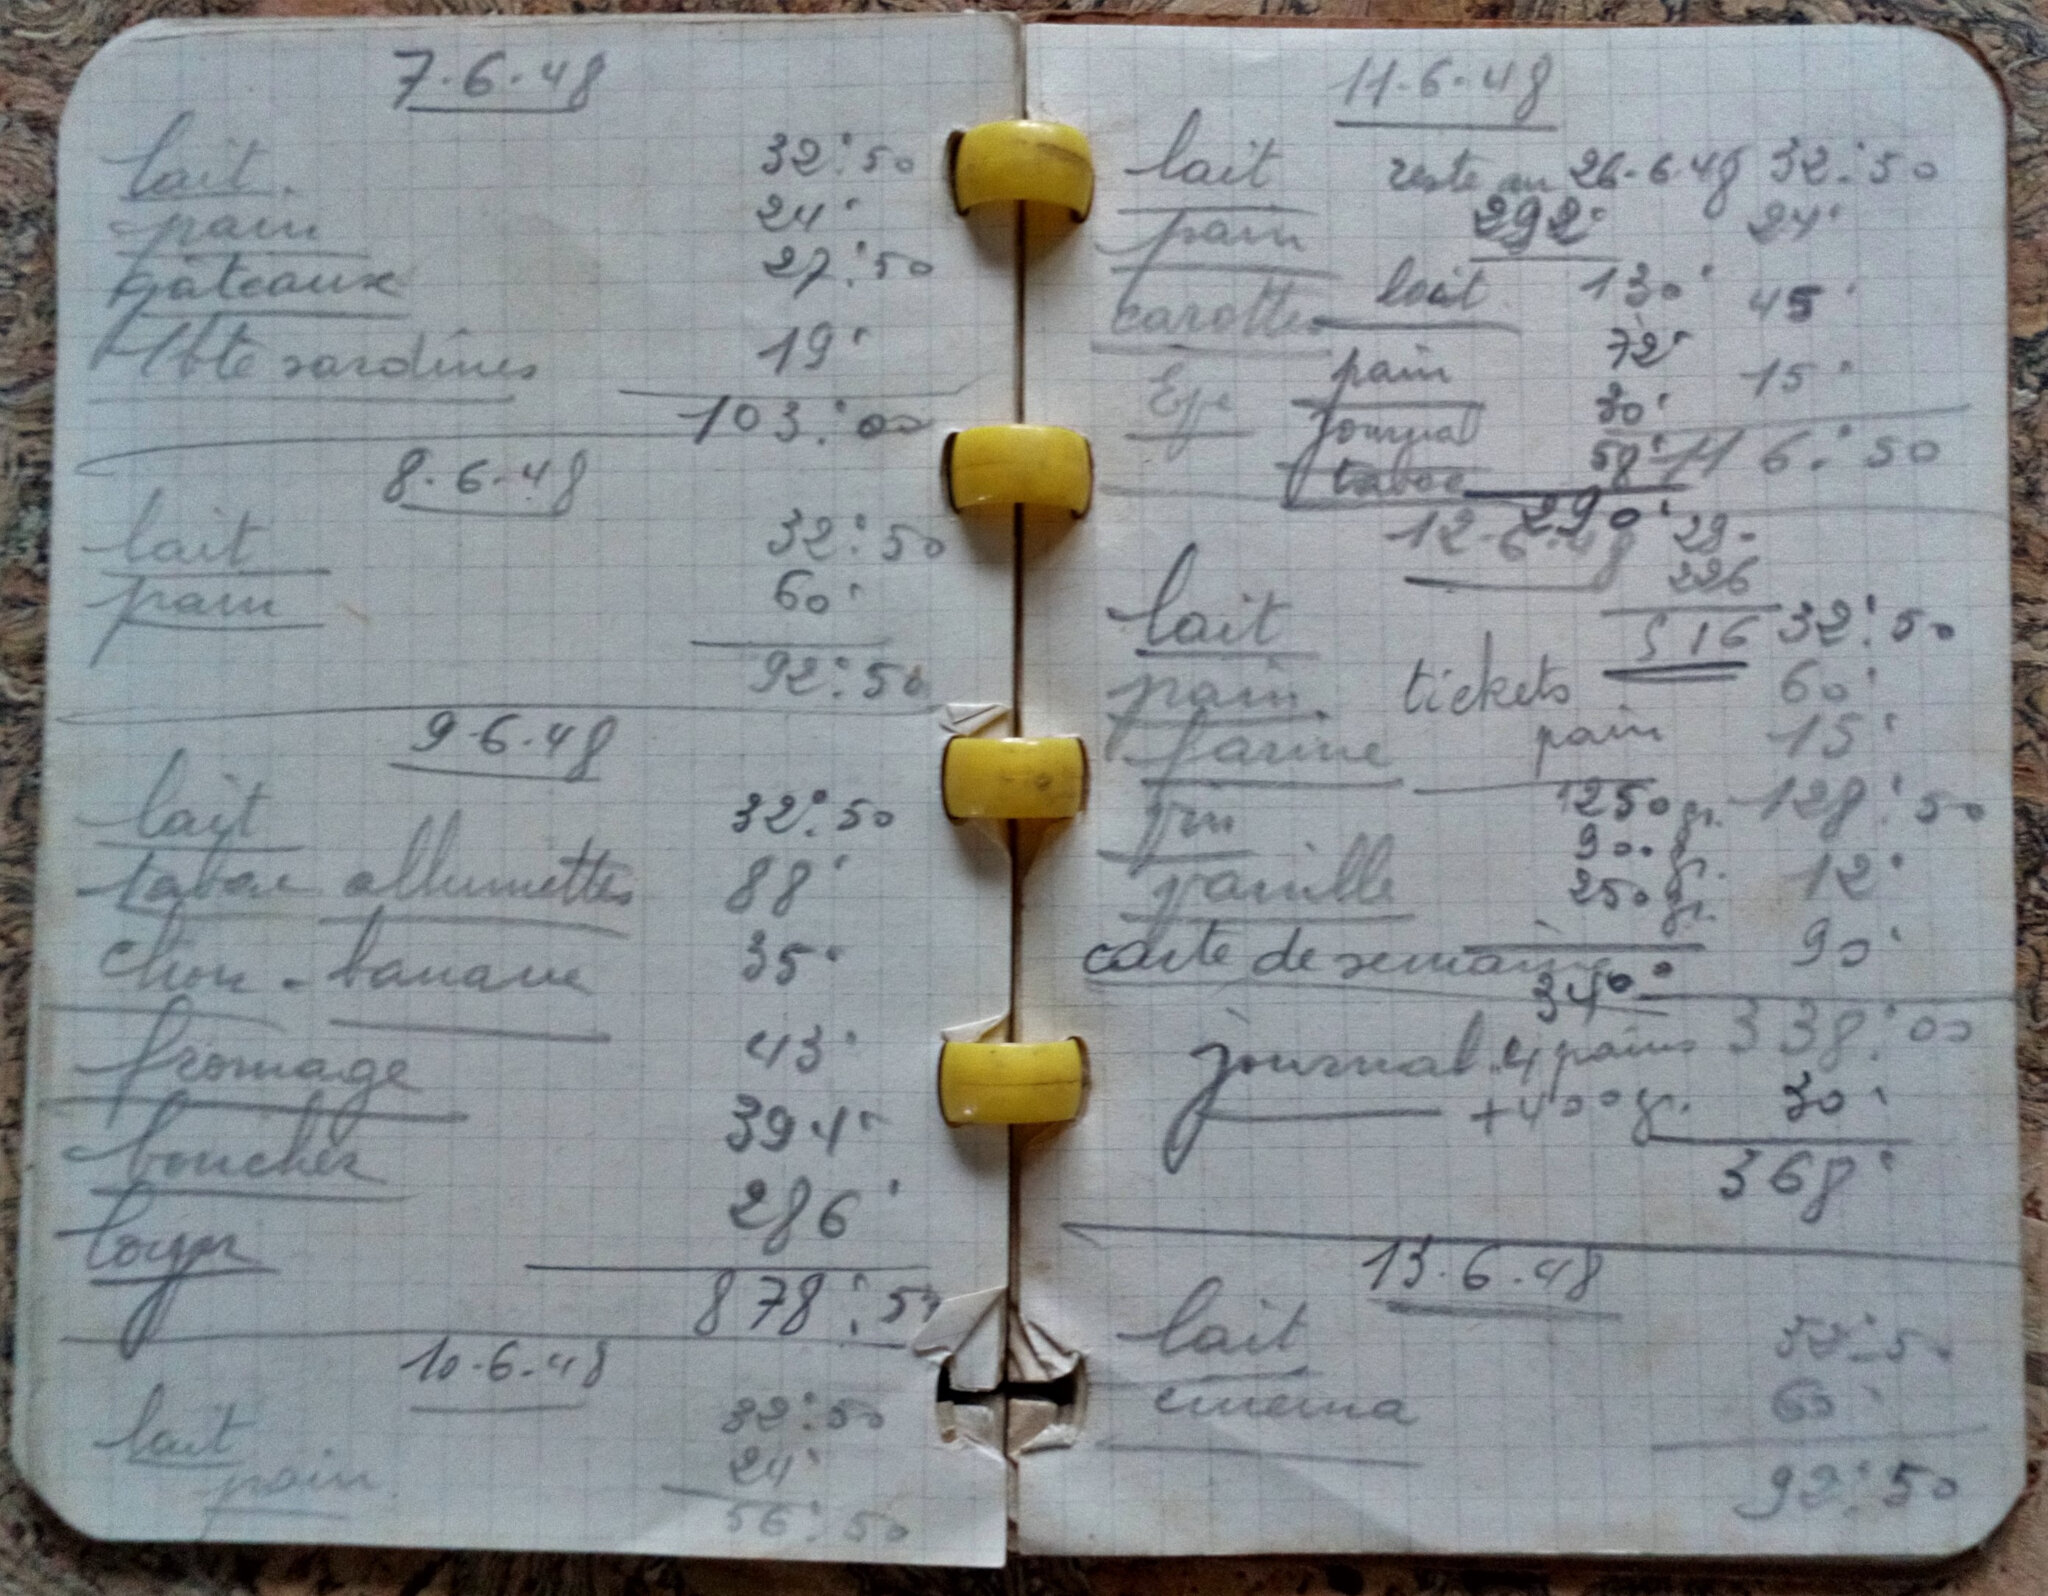 7.6.48
lait 32:50
pain 24:
gâteaux 27:50
1 bte sardines 19:
103:00
8.6.48
lait 32:50
pain 60:
92:50
9.6.48
lait 32:50
tabac allumettes 88:
chou - banane 35:
fromage 43:
boucher 394:
loyer 286:
878:50
10.6.48
lait 32:50
pain 24:
56:50
11.6.48
lait 32:50
reste au 26.6.48
292:
pain 24:
carottes 45:
15:
116:50
lait 130:
pain 72:
journal 30:
tabac 58:
290:
12.6.48
29
226
516
lait 32:50
pain 60:
farine 15:
vin 128:50
vanille 12:
carte de semaine 90:
338:00
tickets
pain
1250 gr.
900 gr.
250 gr.
340:
journal 30:
4 pains
+400 gr.
368:
13.6.48
lait 32:50
cinema 60:
92:50